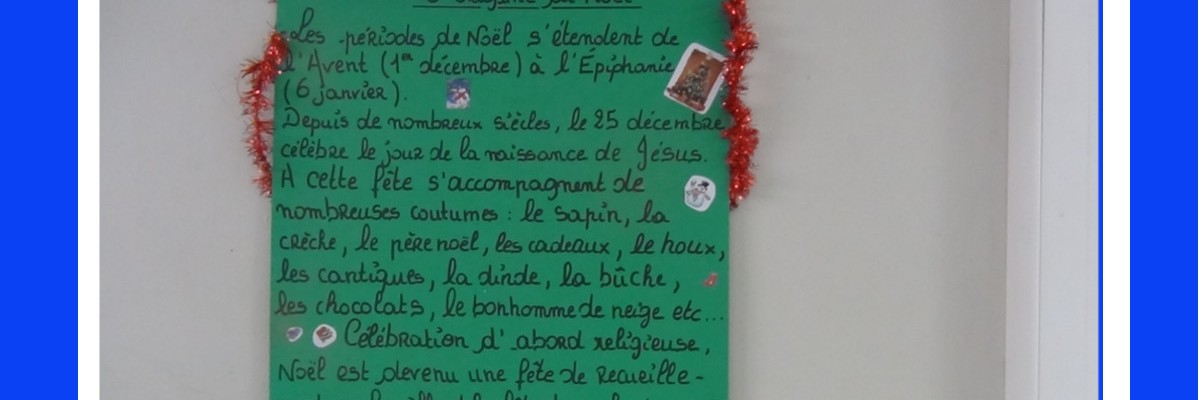 Les périodes de Noël s'étendent de
l'Avent (1er décembre) à l'Épiphanie
(6 janvier).
Depuis de nombreux siècles, le 25 décembre
célèbre le jour de la naissance de Jésus.
A cette fête s'accompagnent de
nombreuses coutumes : le sapin, la
crèche, le père noël, les cadeaux, le houx,
les cantiques, la dinde, la bûche,
les chocolats, le bonhomme de neige etc...
Célébration d'abord religieuse,
Noël est devenu une fête de recueille-